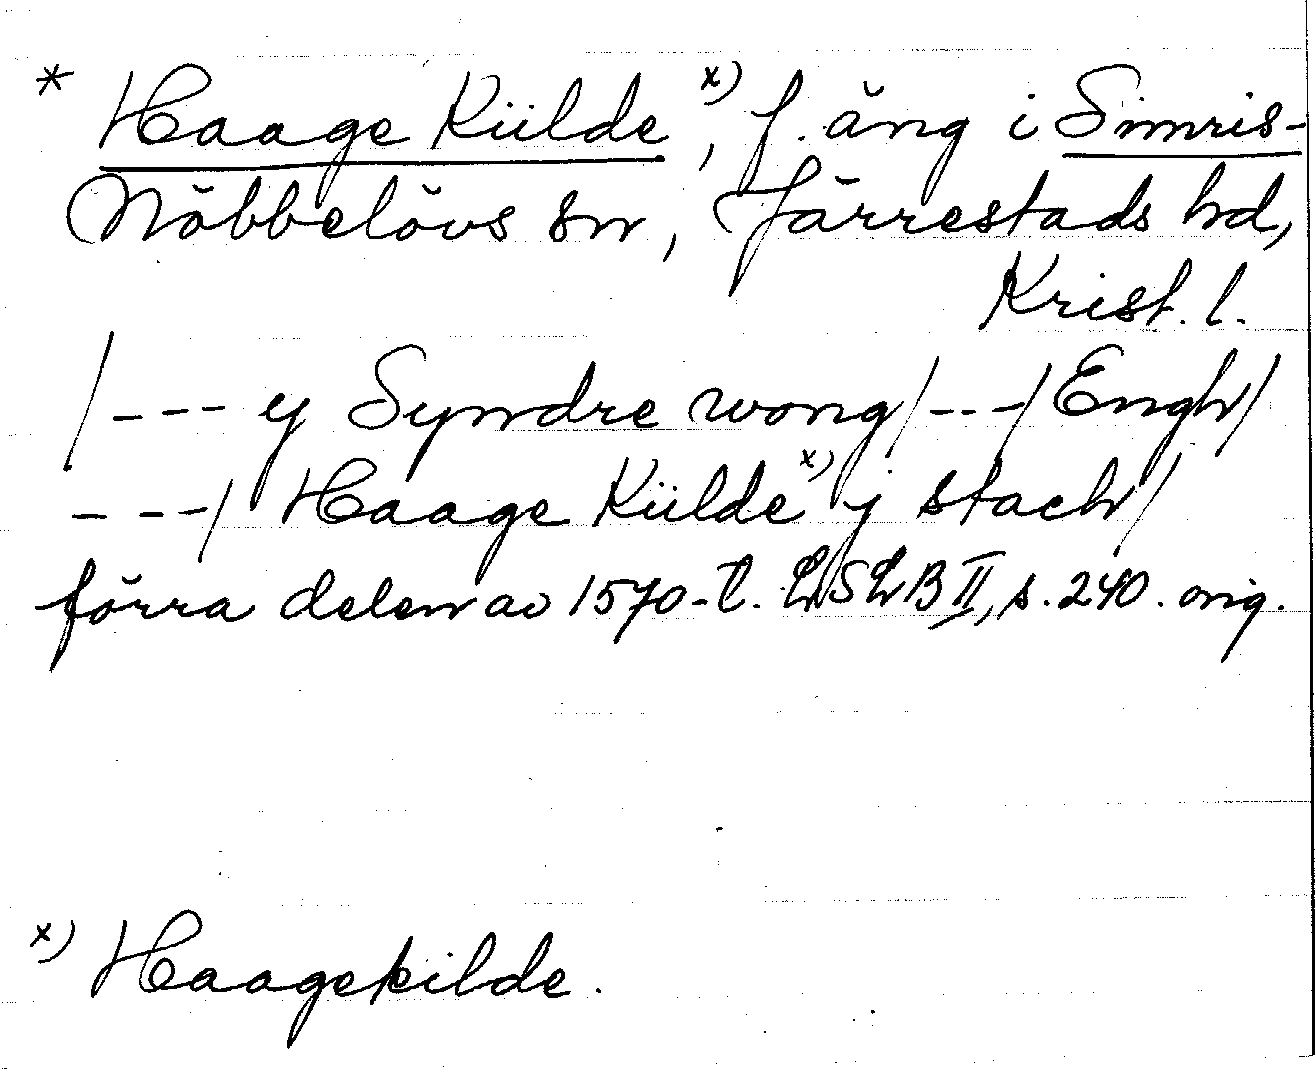 * Haage Kiilde x), f. äng i Simris-
Nöbbelövs sn, Järrestads hd,
Krist. l.
/--- y Syndre wong/---/Engh/
---/ Haage Kiilde x) j stach/
förra delen av 1570-t. LSLB II, s. 240. orig.
x) Haagekilde.